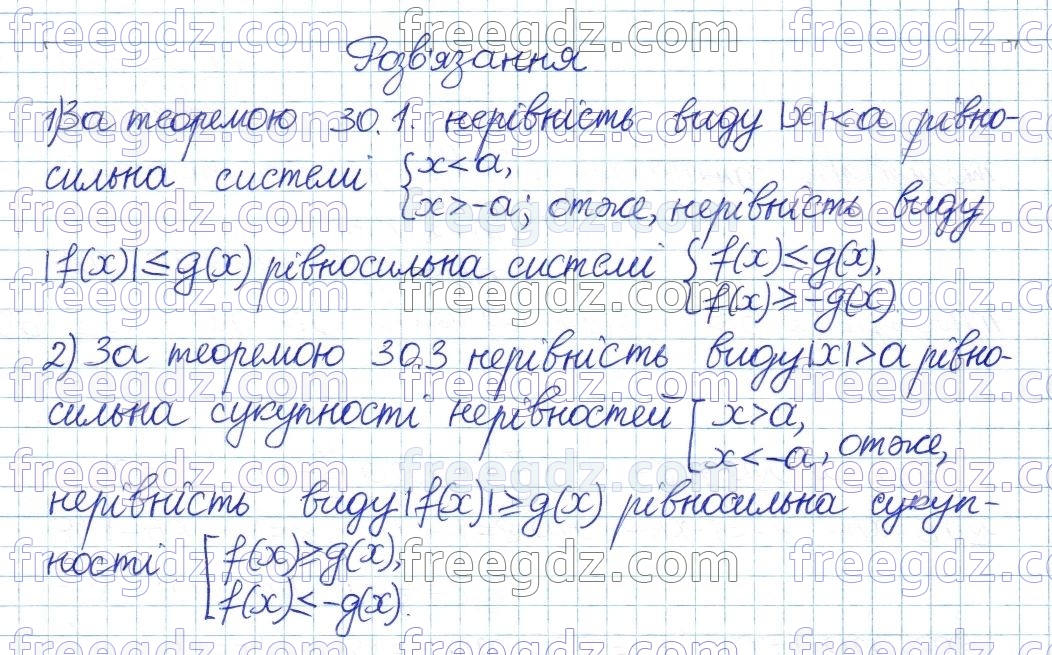 Розв'язання
1) За теоремою 30.1. нерівність виду |x|<a рівно-
сильна системі { x<a,
{ x>-a; отже, нерівність виду
|f(x)|≤g(x) рівносильна системі { f(x)≤g(x),
{ f(x)≥-g(x)
2) За теоремою 30.3 нерівність виду |x|>a рівно-
сильна сукупності нерівностей [ x>a,
[ x<-a, отже,
нерівність виду |f(x)|≥g(x) рівносильна сукуп-
ності [ f(x)≥g(x),
[ f(x)≤-g(x).
freegdz.com